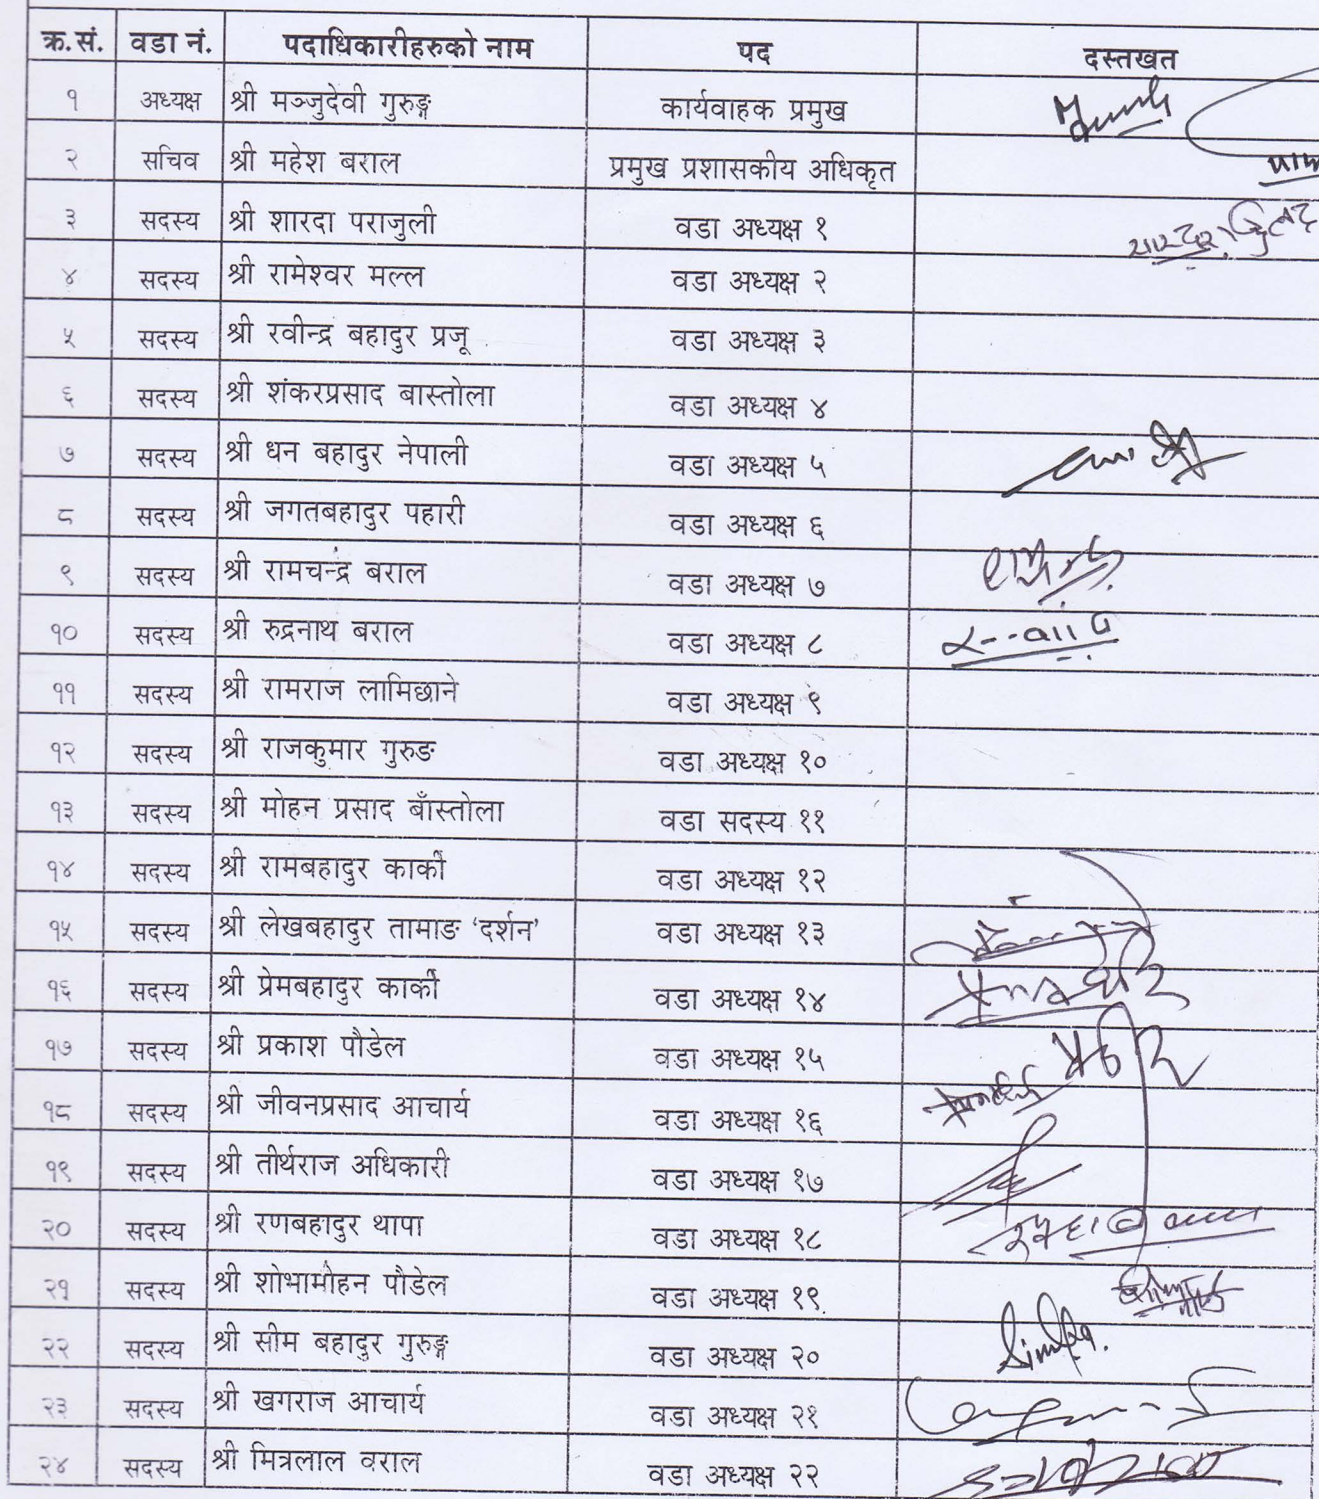 क्र.सं. वडा नं. पदाधिकारीहरुको नाम पद दस्तखत
१ अध्यक्ष श्री मञ्जुदेवी गुरुङ्ग कार्यवाहक प्रमुख
२ सचिव श्री महेश बराल प्रमुख प्रशासकीय अधिकृत
३ सदस्य श्री शारदा पराजुली वडा अध्यक्ष १
४ सदस्य श्री रामेश्वर मल्ल वडा अध्यक्ष २
५ सदस्य श्री रवीन्द्र बहादुर प्रजू वडा अध्यक्ष ३
६ सदस्य श्री शंकरप्रसाद बास्तोला वडा अध्यक्ष ४
७ सदस्य श्री धन बहादुर नेपाली वडा अध्यक्ष ५
८ सदस्य श्री जगतबहादुर पहारी वडा अध्यक्ष ६
९ सदस्य श्री रामचन्द्र बराल वडा अध्यक्ष ७
१० सदस्य श्री रुद्रनाथ बराल वडा अध्यक्ष ८
११ सदस्य श्री रामराज लामिछाने वडा अध्यक्ष ९
१२ सदस्य श्री राजकुमार गुरुङ वडा अध्यक्ष १०
१३ सदस्य श्री मोहन प्रसाद बाँस्तोला वडा सदस्य ११
१४ सदस्य श्री रामबहादुर कार्की वडा अध्यक्ष १२
१५ सदस्य श्री लेखबहादुर तामाङ 'दर्शन' वडा अध्यक्ष १३
१६ सदस्य श्री प्रेमबहादुर कार्की वडा अध्यक्ष १४
१७ सदस्य श्री प्रकाश पौडेल वडा अध्यक्ष १५
१८ सदस्य श्री जीवनप्रसाद आचार्य वडा अध्यक्ष १६
१९ सदस्य श्री तीर्थराज अधिकारी वडा अध्यक्ष १७
२० सदस्य श्री रणबहादुर थापा वडा अध्यक्ष १८
२१ सदस्य श्री शोभामोहन पौडेल वडा अध्यक्ष १९
२२ सदस्य श्री सीम बहादुर गुरुङ्ग वडा अध्यक्ष २०
२३ सदस्य श्री खगराज आचार्य वडा अध्यक्ष २१
२४ सदस्य श्री मित्रलाल वराल वडा अध्यक्ष २२